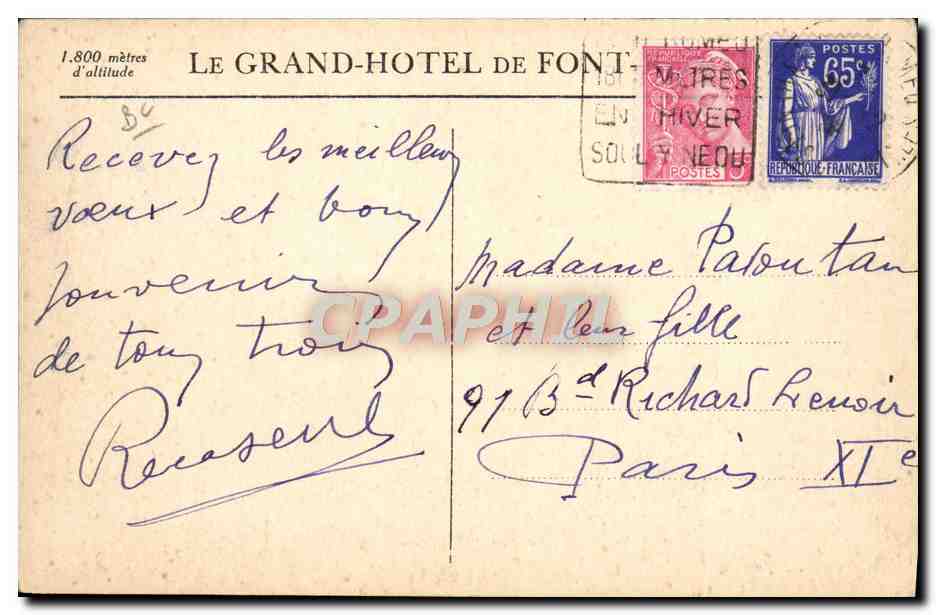 1.800 mètres
d'altitude
LE GRAND-HOTEL DE FONT-
MÈTRES
EN HIVER
POSTES
RÉPUBLIQUE
FRANÇAISE
POSTES
65c
REPUBLIQUE FRANÇAISE
Recevez les meilleurs
vœux et bons
souvenirs
de tous trois
Madame Patoutan
et leur fille
91 Bd Richard Lenoir
Paris XIe
CPAPHIL